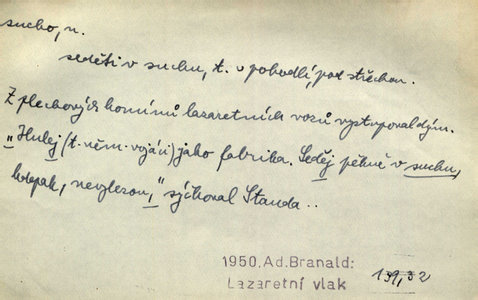 sucho, n.
seděti v suchu, t. v pohodlí, pod střechou.
Z plechových komínů lazaretních vozů vystupoval dým.
„Hulej (t. něm. vojáci) jako fabrika. Seděj pěkně v suchu,
holepak, nevylezou," sýčkoval Standa..
1950. Ad. Branald:
Lazaretní vlak
139,32